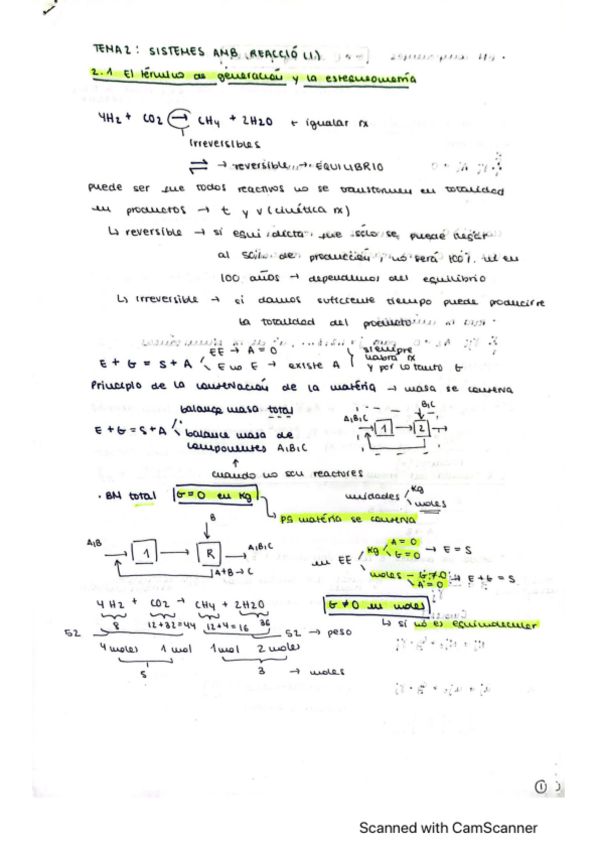 TEMA 2: SISTEMES AMB REACCIÓ (I)
2.1 El término de generación y la estequiometría
4H2 + CO2 → CH4 + 2H2O + igualar rx
irreversibles
⇌ → reversible → EQUILIBRIO
puede ser que todos reactivos no se transformen en totalidad
en productos → t y v (cinética rx)
↳ reversible → si equi. dicta, que sólo se puede llegar
al 50% de producción, no será 100% ni en
100 años → dependemos del equilibrio
↳ irreversible → si damos suficiente tiempo puede producirse
la totalidad del producto
E + G = S + A
EE → A = 0
E no E → existe A
siempre
habrá rx
y por lo tanto G
Principio de la conservación de la matéria → masa se conserva
E + G = S + A
balance masa total
balance masa de
componentes A,B,C
↑
cuando no son reactores
A,B,C
1
2
B,C
· BM total G=0 en Kg
unidades
kg
moles
↳ PQ matéria se conserva
A,B
1
B
R
A,B,C
A+B→C
en EE
kg A=0
G=0 → E = S
moles - G≠0 → E + G = S
A=0
4H2 + CO2 → CH4 + 2H2O
8 12+32=44 12+4=16 36
52 52 → peso
4 moles 1 mol 1 mol 2 moles
5 3 → moles
G ≠ 0 en moles
↳ si no es equimolecular
1
Scanned with CamScanner